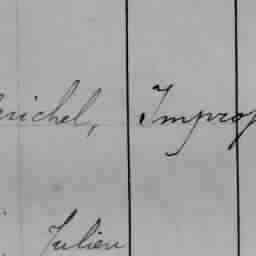 erichel, Improp
Julien